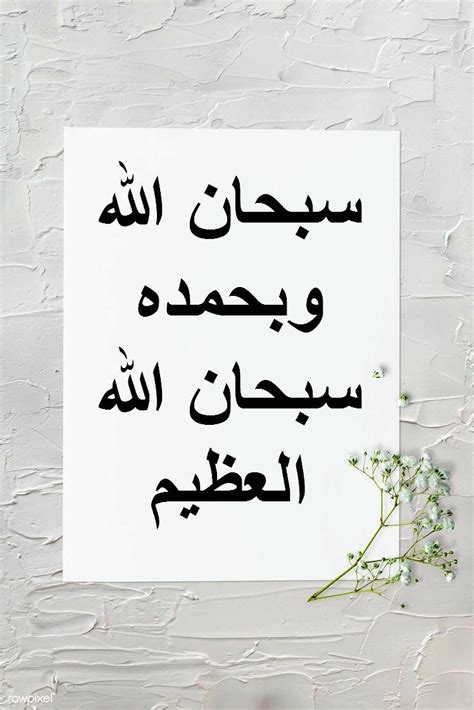 سبحان الله
وبحمده
سبحان الله
العظيم
rawpixel